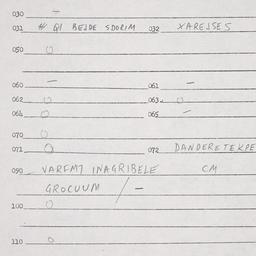 030 —
031 # QI BEJDE SDORIM 032 XAREJSES
050 O
060 — 061 —
062 O 063 O
064 O 065 —
070 O
071 O 072 DANDERETEKPE
090 VAREMT INAGRIBELE CM
GROCUUM / —
100 O
110 O